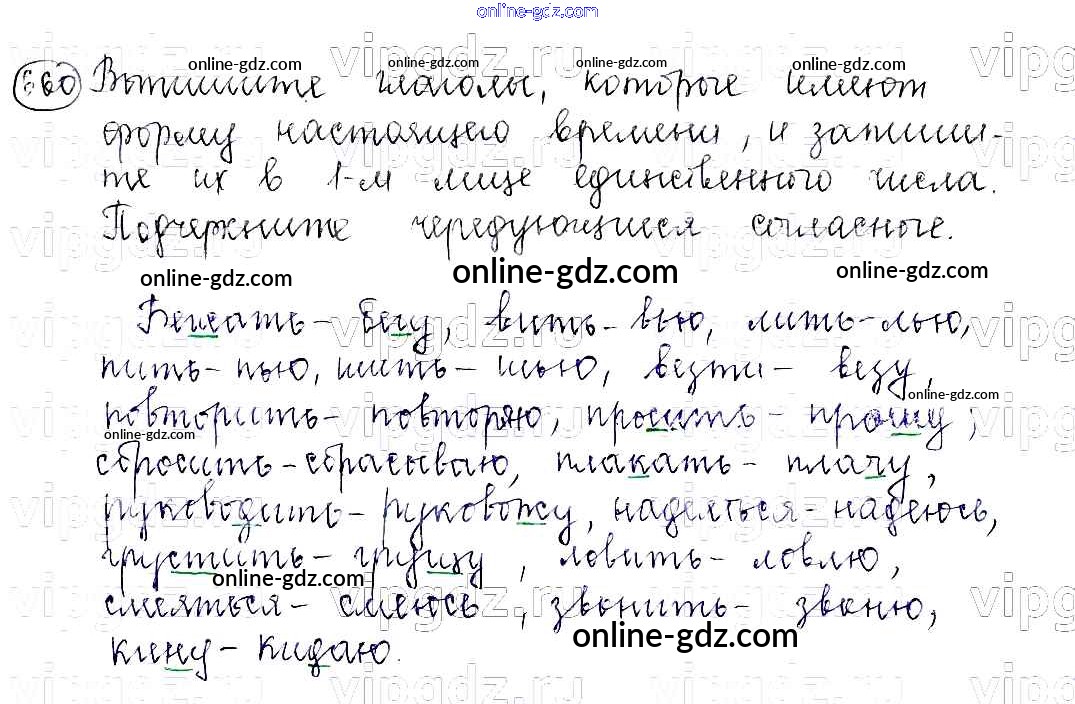 online-gdz.com
vipgdz.ru vipgdz.ru vipgdz
online-gdz.com online-gdz.com online-gdz.com online-gdz.com
660 Выпишите глаголы, которые имеют
форму настоящего времени, и запиши-
те их в 1-м лице единственного числа.
Подчеркните чередующиеся согласные.
online-gdz.com online-gdz.com online-gdz.com
Бежать - бегу, вить - вью, лить - лью,
пить - пью, шить - шью, везти - везу,
online-gdz.com
повторить - повторяю, просить - прошу;
online-gdz.com
сбросить - сбрасываю, плакать - плачу,
руководить - руковожу, надеяться - надеюсь,
грустить - грущу, ловить - ловлю,
online-gdz.com
смеяться - смеюсь, звонить - звоню,
online-gdz.com
кину - кидаю.